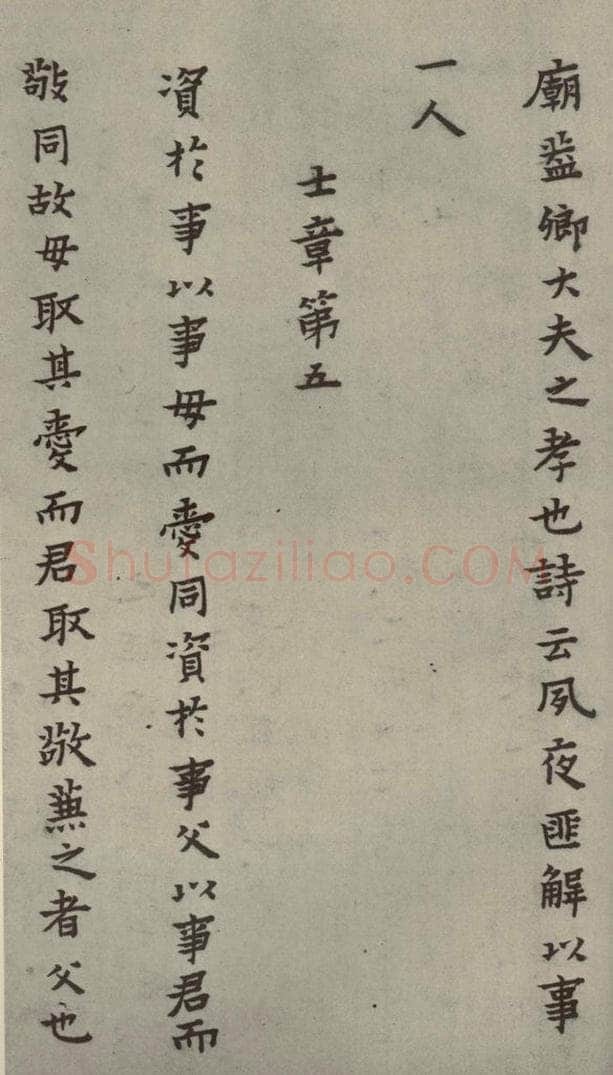 廟蓋卿大夫之孝也詩云夙夜匪解以事
一人
士章第五
資於事以事母而愛同資於事父以事君而
敬同故母取其愛而君取其敬兼之者父也
Shufaziliao.COM